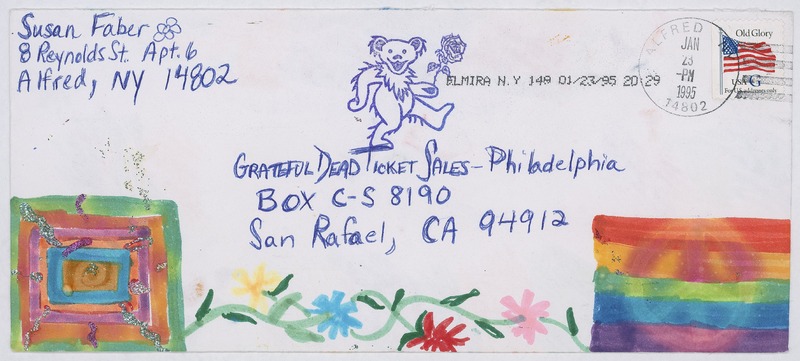 Susan Faber
8 Reynolds St. Apt. 6
Alfred, NY 14802
ALFRED
JAN
23
-PM
1995
14802
Old Glory
USA G
For U.S. addresses only
ELMIRA N.Y 148 01/23/95 20:29
GRATEFUL DEAD TICKET SALES - Philadelphia
BOX C-S 8190
San Rafael, CA 94912